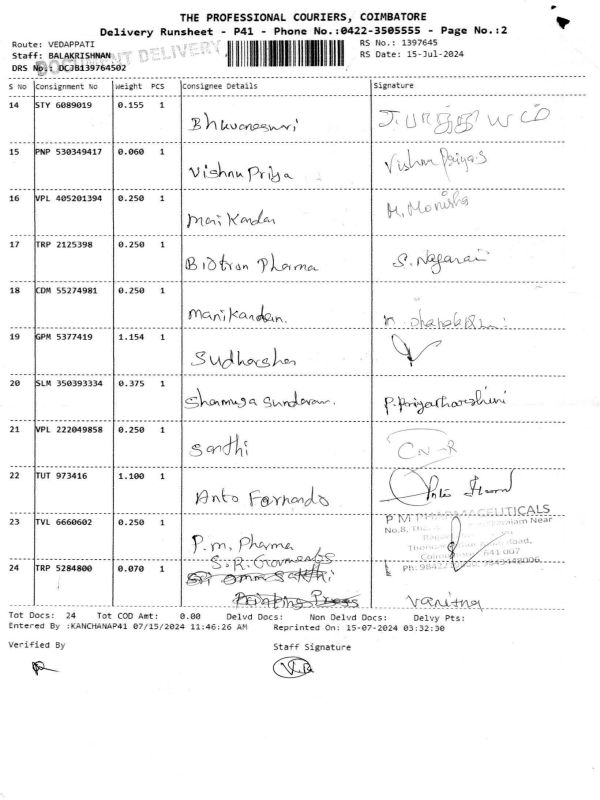 THE PROFESSIONAL COURIERS, COIMBATORE
Delivery Runsheet - P41 - Phone No.:0422-3505555 - Page No.:2
Route: VEDAPPATI RS No.: 1397645
Staff: BALAKRISHNAN RS Date: 15-Jul-2024
DOCUMENT DELIVERY
DRS No.: DCJB139764502
S No Consignment No Weight PCS Consignee Details Signature
14 STY 6089019 0.155 1
Bhuvaneswari
15 PNP 530349417 0.060 1
Vishnu Priya Vishnu Priya.S
16 VPL 405201394 0.250 1
Mani Kandan M. Monisha
17 TRP 2125398 0.250 1
Biotron Pharma S. Nagaraj
18 CDM 55274981 0.250 1
Manikandan.
19 GPM 5377419 1.154 1
Sudharshan
20 SLM 350393334 0.375 1
Shanmuga Sundaram. P. Priyatharshini
21 VPL 222049858 0.250 1
Santhi
22 TUT 973416 1.100 1
Anto Fernando
23 TVL 6660602 0.250 1
P M PHARMACEUTICALS
P.M. Pharma
24 TRP 5284800 0.070 1
S.R. Garments
Sri Omm Sakthi
Printing Press
Tot Docs: 24 Tot COD Amt: 0.00 Delvd Docs: Non Delvd Docs: Delvy Pts:
Entered By :KANCHANAP41 07/15/2024 11:46:26 AM Reprinted On: 15-07-2024 03:32:30
Verified By Staff Signature